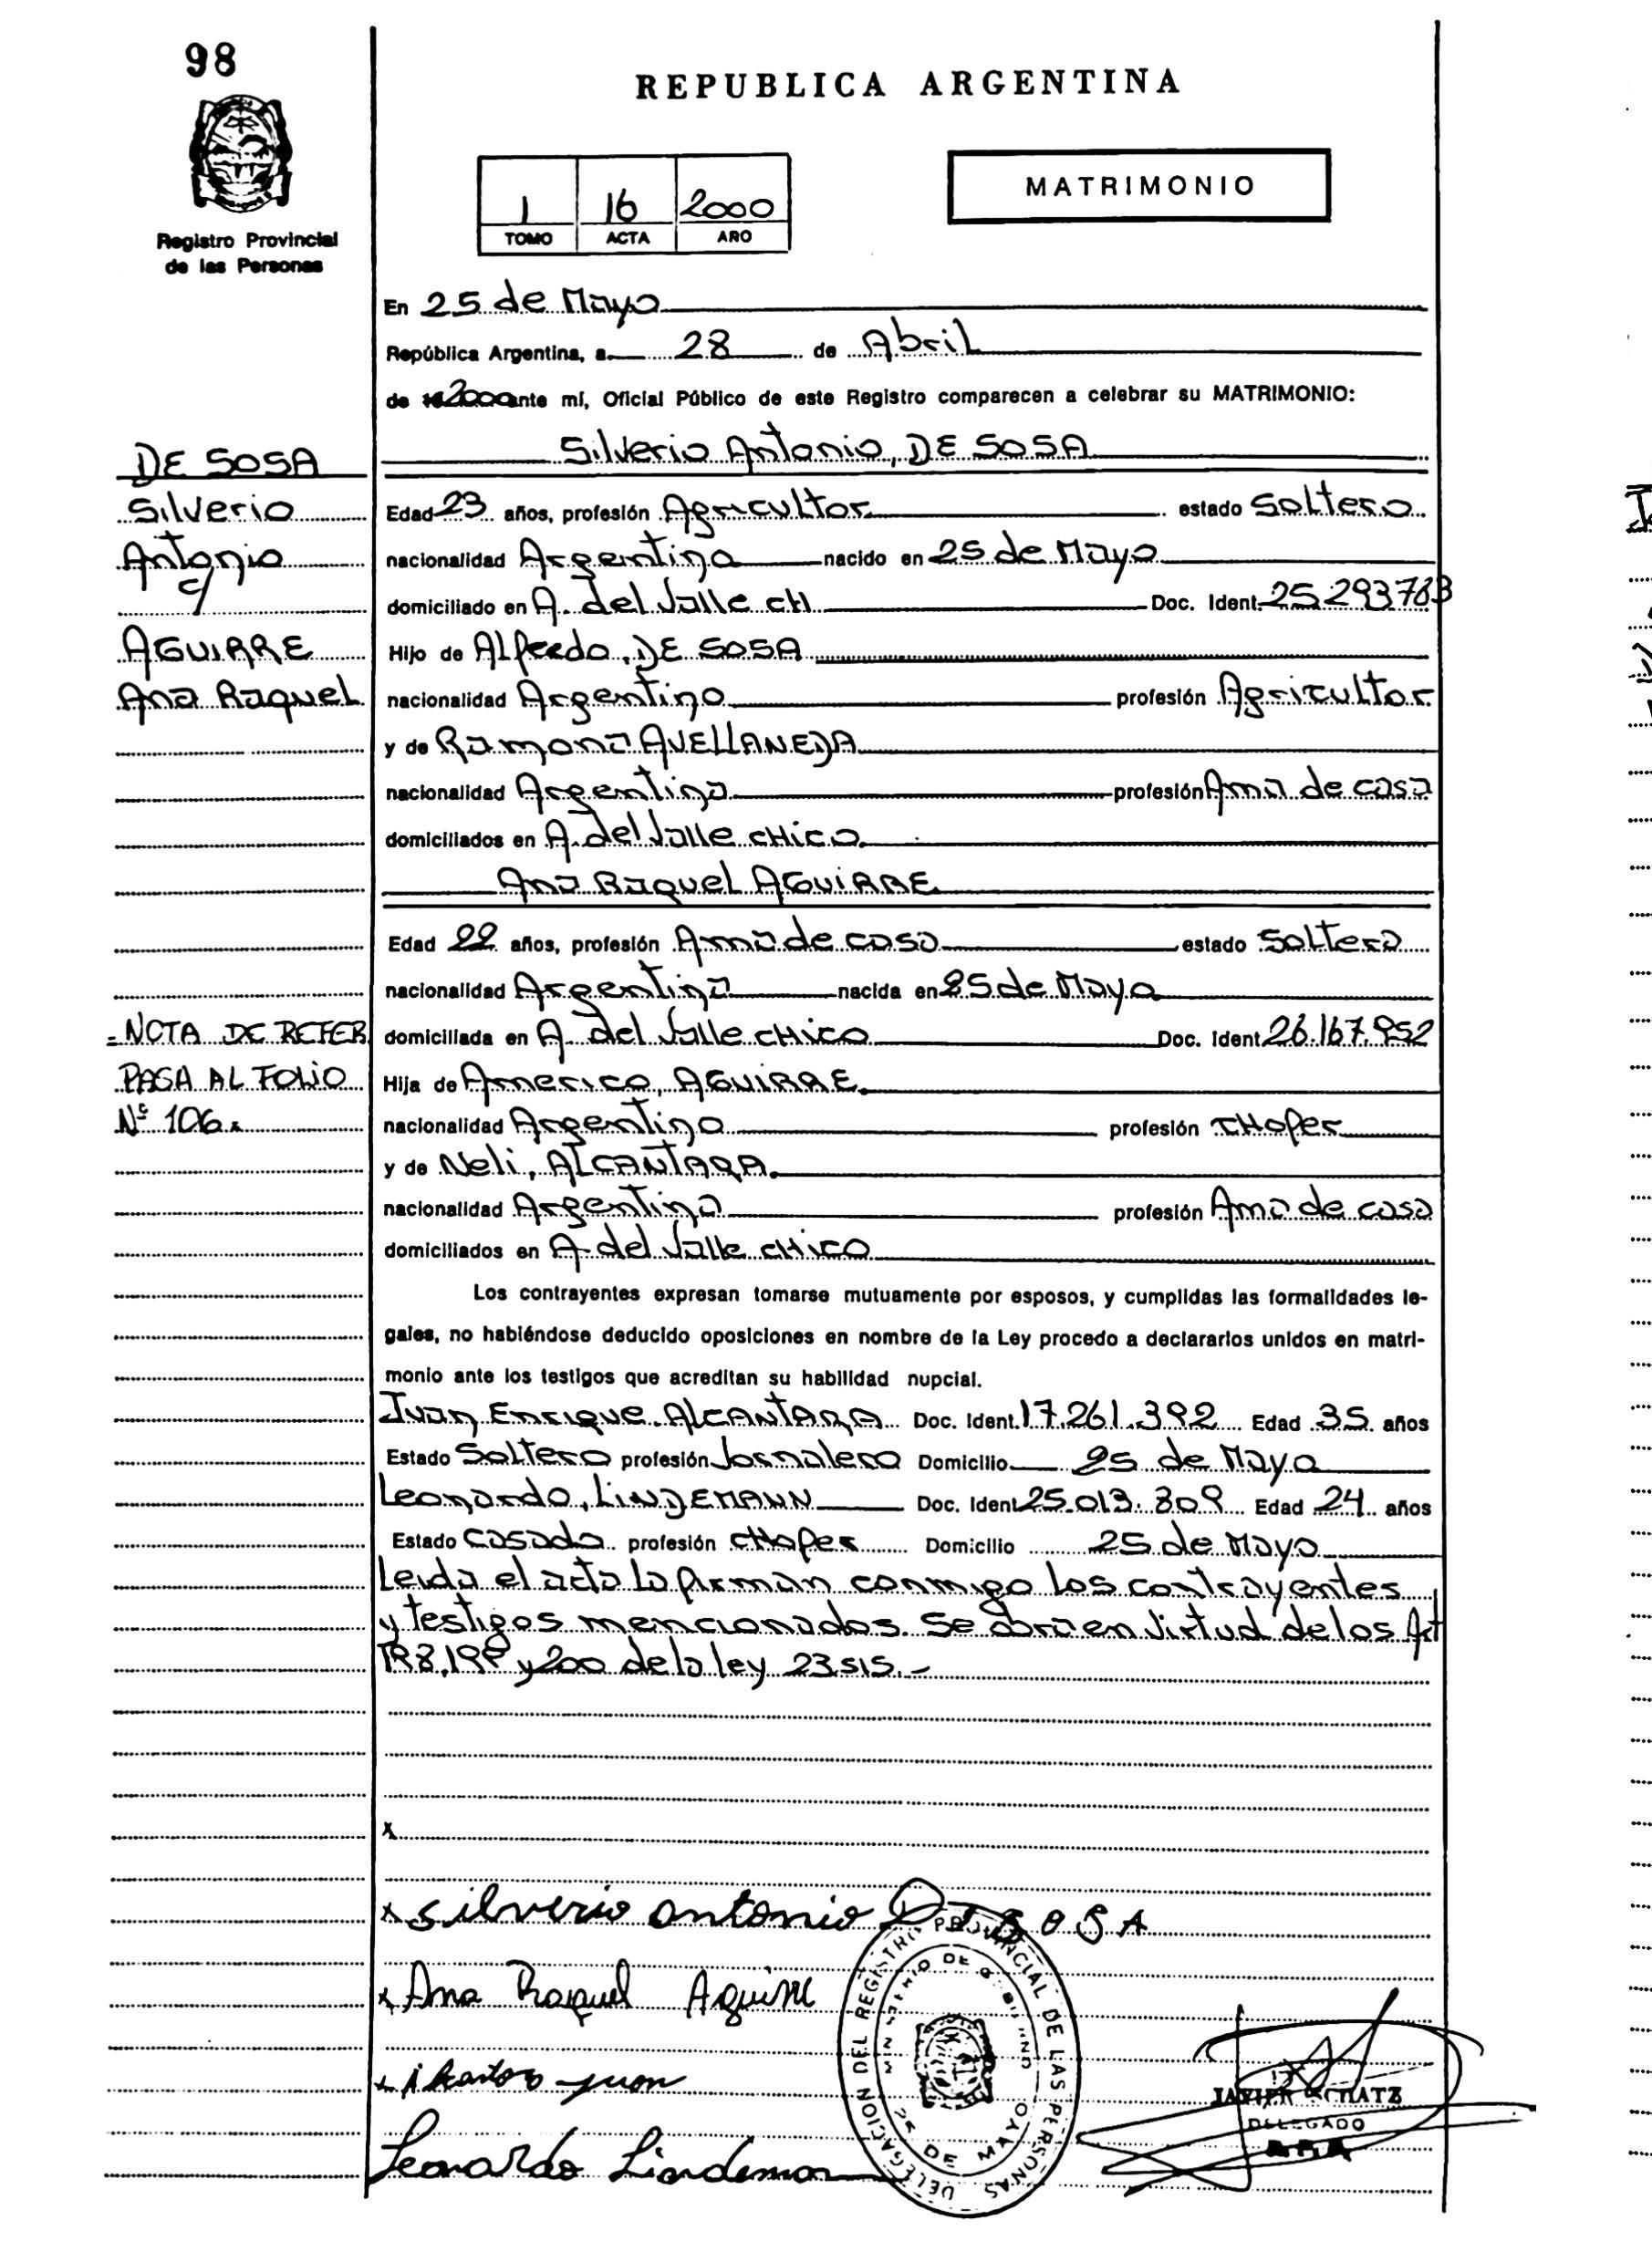 98
REPUBLICA ARGENTINA
1 16 2000
TOMO ACTA AÑO
MATRIMONIO
Registro Provincial
de las Personas
En 25 de Mayo
República Argentina, a 28 de Abril
de 2000 ante mí, Oficial Público de este Registro comparecen a celebrar su MATRIMONIO:
DE SOSA
Silverio
Antonio
c/
AGUIRRE
Ana Raquel
Silverio Antonio, DE SOSA
Edad 23 años, profesión Agricultor estado Soltero
nacionalidad Argentina nacido en 25 de Mayo
domiciliado en A. del Valle CH Doc. Ident. 25.293.783
Hijo de Alfredo, DE SOSA
nacionalidad Argentino profesión Agricultor
y de Ramona AVELLANEDA
nacionalidad Argentina profesión Ama de casa
domiciliados en A. del Valle CHico
Ana Raquel AGUIRRE
Edad 22 años, profesión Ama de casa estado Soltera
nacionalidad Argentina nacida en 25 de Mayo
domiciliada en A. del Valle CHico Doc. Ident. 26.167.952
Hija de Americo, AGUIRRE
nacionalidad Argentino profesión CHofer
y de Neli, ALCANTARA
nacionalidad Argentina profesión Ama de casa
domiciliados en A. del Valle CHico
NOTA DE REFER
PASA AL FOLIO
Nº 106.
Los contrayentes expresan tomarse mutuamente por esposos, y cumplidas las formalidades le-
gales, no habiéndose deducido oposiciones en nombre de la Ley procedo a declararlos unidos en matri-
monio ante los testigos que acreditan su habilidad nupcial.
Juan Enrique ALCANTARA Doc. Ident. 17.261.392 Edad 35 años
Estado Soltero profesión Jornalero Domicilio 25 de Mayo
Leonardo, LINDEMANN Doc. Ident. 25.013.309 Edad 24 años
Estado Casado profesión CHofer Domicilio 25 de Mayo
Leida el acta la firman conmigo los contrayentes
y testigos mencionados. Se obra en virtud de los Art
198, 199 y 200 de la ley 23515.-
x
x Silverio antonio DE SOSA
x Ana Raquel Aguirre
x Alcantara juan
Leonardo Lindeman
DELEGACION DEL REGISTRO PROVINCIAL DE LAS PERSONAS
MINISTERIO DE GOBIERNO
25 DE MAYO
JAVIER SCHATZ
DELEGADO